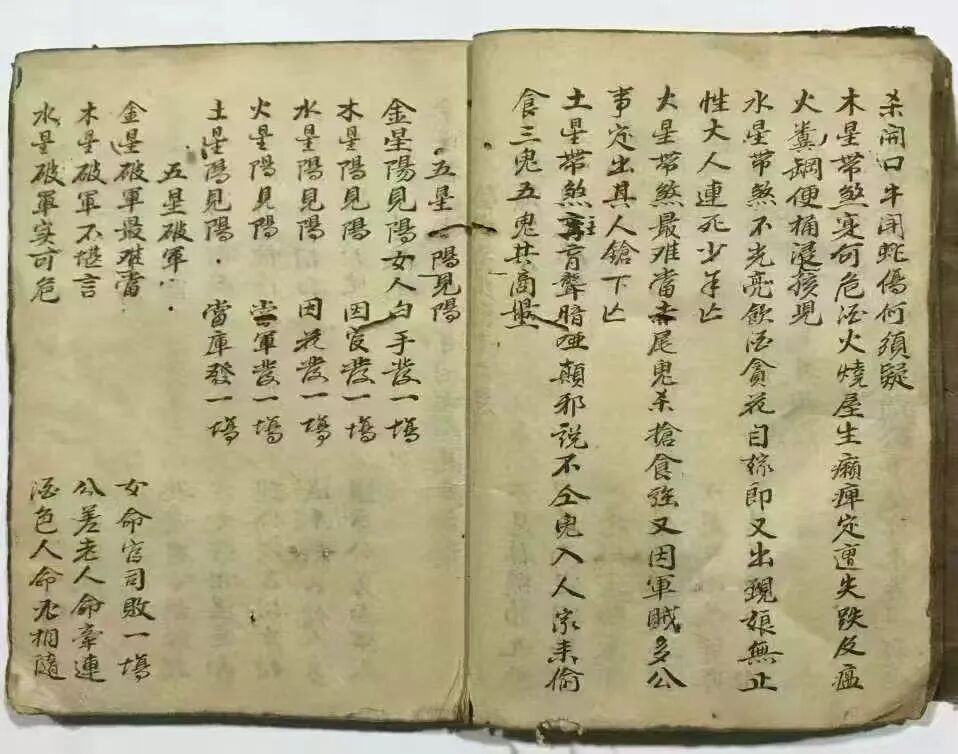 杀開口牛開蛇傷何須疑
木星帶煞定何危酒火燒屋生癩痺定遭失跌反瘟
火糞缸便桶浸孩現
水星帶煞不光亮飲酒貪花自縊即又出現娘無止
性大人連死少年亡
火星帶煞最难當尾鬼杀搶食強又因軍賊多公
事定出其人鎗下亡
土星帶煞主盲聾暗啞顛邪說不仝鬼入人家来偷
食三鬼五鬼共商量
五星陽見陽
金星陽見陽女人白手發一塲
木星陽見陽 因官發一塲
水星陽見陽 因花發一塲
火星陽見陽 當軍發一塲
土星陽見陽 當庫發一塲
五星破軍
金星破軍最难當 女命官司敗一塲
木星破軍不堪言 公差老人命牽連
水星破軍实可危 酒色人命尤相隨